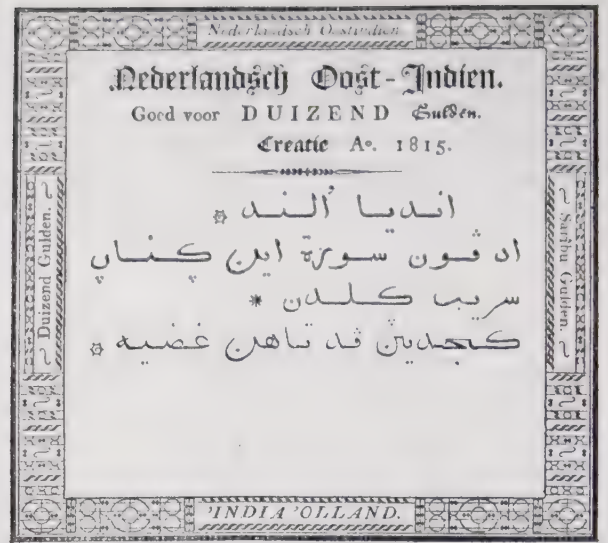 Nederlandsch Oostindien
Nederlandsch Oost-Indien.
Goed voor DUIZEND Gulden.
Creatie Aº. 1815.
انديا ألند ۞
ادڤون سورة اين
سريب كلدن *
كجديڽ ڤد تاهن غضيه ۞
Duizend Gulden.
Saribu Gulden.
'INDIA 'OLLAND.